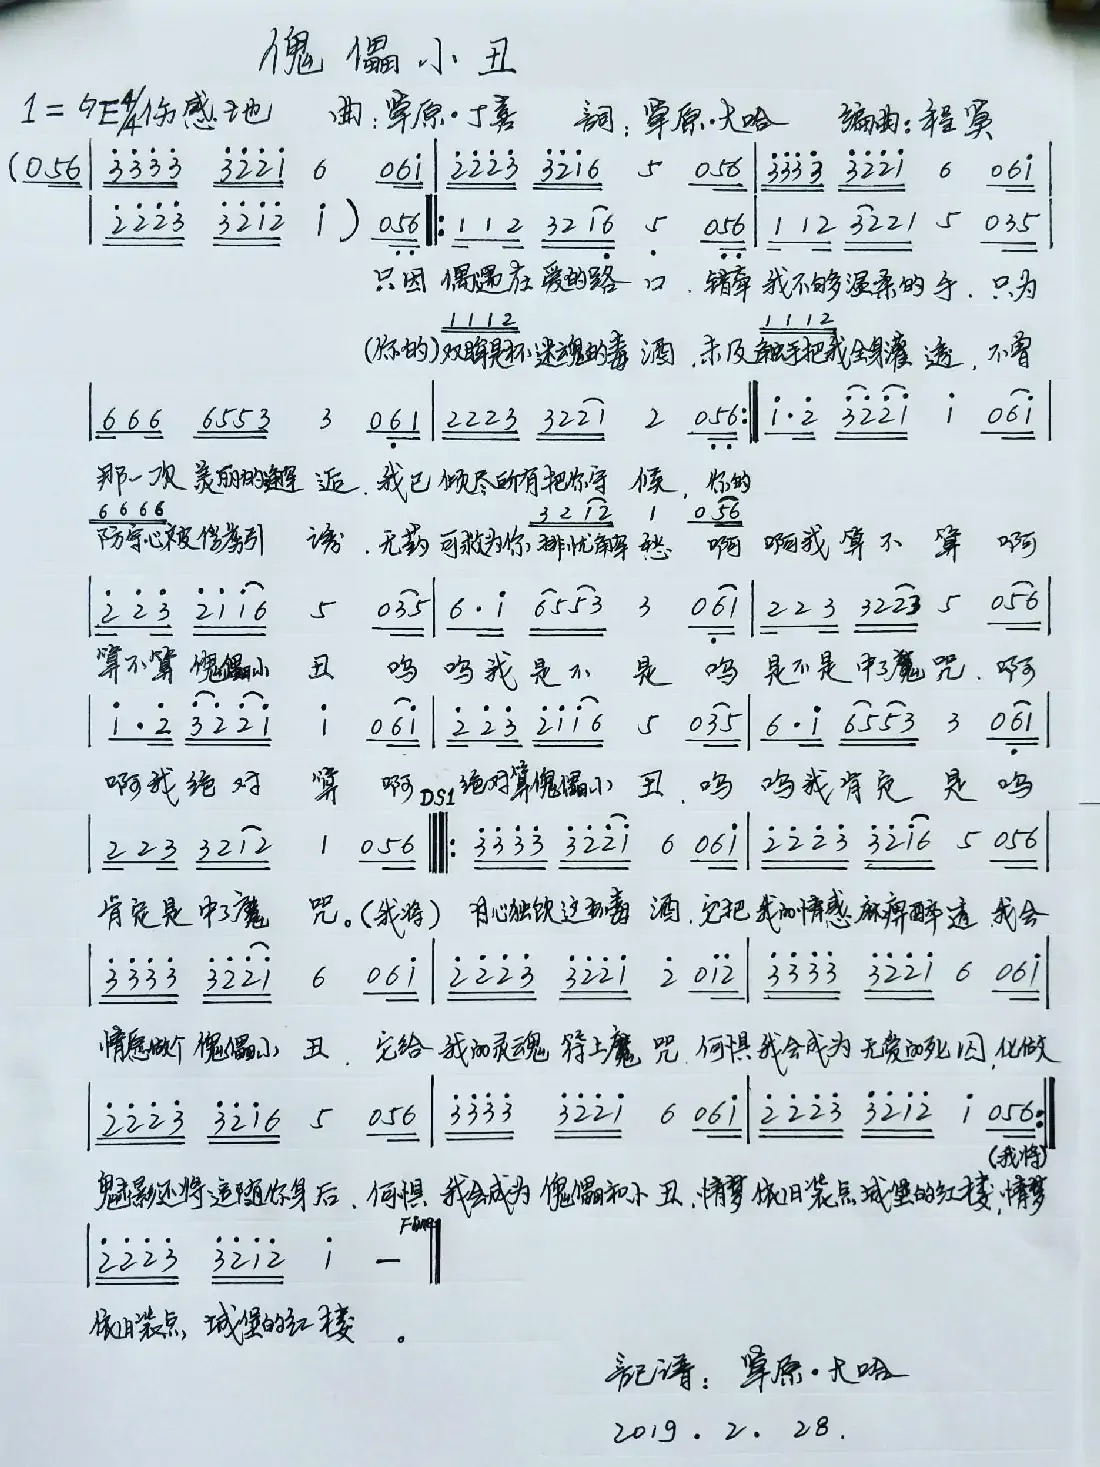 傀儡小丑
1=♭E 4/4 伤感地 曲:草原·丁喜 詞:草原·大哈 编曲:程寅
(056| 3333 3221 6 061 | 2223 3216 5 056 | 3333 3221 6 061
| 2223 3212 1 ) 056 ‖: 112 3216 5 056 | 112 3221 5 035
只因 偶遇在爱的路口,错牵我不够温柔的手,只为
1112 1112
(你的)双眸是杯迷魂的毒酒,未及触手把我全身灌透,不曾
| 666 6553 3 061 | 2223 3221 2 056 :‖ 1·2 3221 1 061
那一次美丽的邂逅,我已倾尽所有把你守候,你的
6666 3212 1 056
防守心被偿类引诱,无药可救为你排忧解愁 啊 啊我算不算 啊
| 223 2116 5 035 | 6·1 6553 3 061 | 223 3223 5 056
算不算傀儡小丑 呜 呜我是不是 呜 是不是中了魔咒,啊
| 1·2 3221 1 061 | 223 2116 5 035 | 6·1 6553 3 061
啊我绝对算 啊 绝对算傀儡小丑,呜 呜我肯定是呜
DS1
| 223 3212 1 056 ‖: 3333 3221 6 061 | 2223 3216 5 056
肯定是中了魔咒。(我将) 甘心独饮这杯毒酒,它把我的情感麻痹醉透 我会
| 3333 3221 6 061 | 2223 3221 2 012 | 3333 3221 6 061
情愿做个傀儡小丑,它给我的灵魂符上魔咒,何惧我会成为无爱的死囚,化做
| 2223 3216 5 056 | 3333 3221 6 061 | 2223 3212 1 056 :‖
(我将)
魅影还将追随你身后,何惧我会成为傀儡和小丑,情梦依旧装点城堡的红楼,情梦
| 2223 3212 1 — ‖ Fine
依旧装点城堡的红楼。
記谱:草原·大哈
2019.2.28.